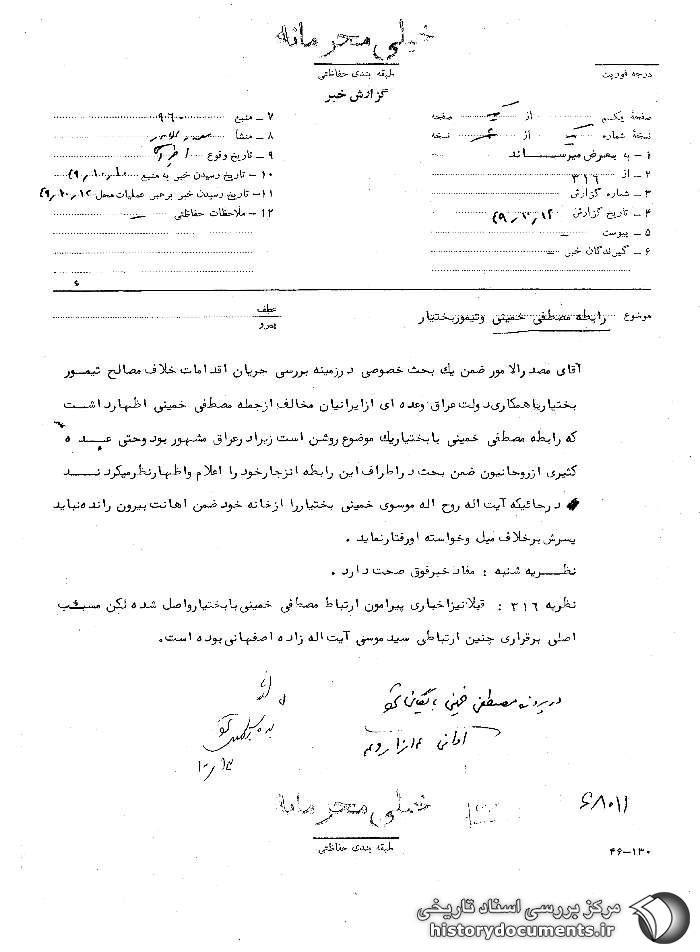 خیلی محرمانه
طبقه بندی حفاظتی
درجه فوریت
گزارش خبر
صفحه یکم از صفحه
نسخه شماره از نسخه
۱ – به بعرض میرساند
۲ – از ۳۱۶
۳ – شماره گزارش
۴ – تاریخ گزارش ۴۹٫۱۰٫۱۲
۵ – پیوست
۶ – گیرندگان خبر
۷ – منبع ۹۰۶۰
۸ – منشأ
۹ – تاریخ وقوع
۱۰ – تاریخ رسیدن خبر به منبع ۴۹٫۱۰٫۱۰
۱۱ – تاریخ رسیدن خبر برهبر عملیات محل ۴۹٫۱۰٫۱۲
۱۲ – ملاحظات حفاظتی
موضوع رابطه مصطفی خمینی وتیموربختیار
عطف
پیرو
آقای مصدرالامور ضمن یك بحث خصوصی درزمینه بررسی جریان اقدامات خلاف مصالح تیمور
بختیارباهمکاری دولت عراق وعده ای ازایرانیان مخالف ازجمله مصطفی خمینی اظهارداشت
که رابطه مصطفی خمینی بابختیاریك موضوع روشن است زیرادرعراق مشهور بودوحتی عده
کثیری ازروحانیون ضمن بحث دراطراف این رابطه انزجارخود را اعلام واظهارنظرمیکردند
درحالیکه آیت اله روح اله موسوی خمینی بختیاررا ازخانه خود ضمن اهانت بیرون رانده نباید
پسرش برخلاف میل وخواسته اورفتارنماید .
نظریه شنبه : مفاد خبرفوق صحت دارد .
نظریه ۳۱۶ : قبلانیزاخباری پیرامون ارتباط مصطفی خمینی بابختیارواصل شده لکن مسبب
اصلی برقراری چنین ارتباطی سیدموسی آیت اله زاده اصفهانی بوده است.
در پرونده مصطفی خمینی بایگانی شود
۱۰٫۱۳
۶۸۰۱۱
خیلی محرمانه
طبقه بندی حفاظتی
۴۶-۱۳۰
مرکز بررسی اسناد تاریخی
historydocuments.ir